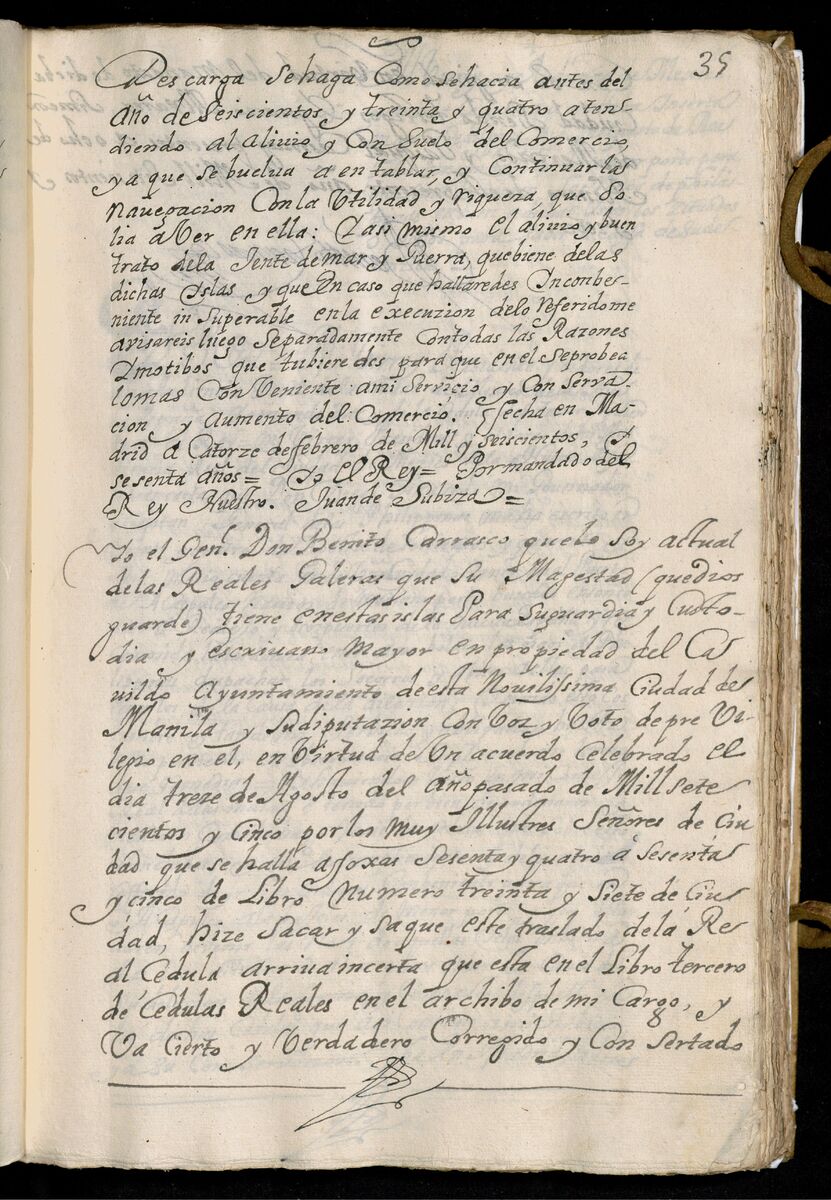 35
Descarga Sehaga Como sehacia antes del
Año de Seiscientos y treinta y quatro aten-
diendo al aliuio y Con Suelo del Comercio,
ya que se buelua a en tablar, y Continuar las
nauegacion Con la Utilidad y riqueza, que So
lia aVer en ella: Y asi mismo el aliuio y buen
trato dela Jente de mar y Guerra, quebiene delas
dichas Yslas y que en caso que hallaredes Inconbe-
niente in Superable enla execuzion delo referidome
avisareis luego Separadamente Contodas las Razones
Ymotibos que tubieredes para que en el Seprobea
lomas Conveniente ami Servicio y Con Serva-
cion y aumento del Comercio. ffecha en Ma-
drid a Catorze defebrero de Mill y seiscientos, Y
sesenta años= Yo el Rey= Pormandado del
Rey Nuestro. Juan de Subiza=
Yo el Gen.l Don Benito Carrasco quelo Soy actual
delas Reales Galeras que Su Magestad (quedios
guarde) tiene enestas islas Para Suguardia y Custo-
dia y escriuano mayor en propiedad del Ca
uildo Ayuntamiento de esta Novilissima Ciudad de
Manila y Sudiputazion Con Voz y Voto de pre Vi-
legio en el, en Virtud de Un acuerdo Celebrado el
dia treze de Agosto del año pasado de Mill sete
cientos y Cinco por los muy Illustres Señores de Ciu
dad que se halla affoxas Sesenta y quatro a Sesenta
y cinco de Libro Numero treinta y Siete de Ciu
dad, hize Sacar y saque este traslado dela Re
al Cedula arriua incerta que esta en el Libro tercero
de Cedulas Reales en el archibo de mi Cargo, y
Va Cierto y Verdadero Corregido y Con Sertado